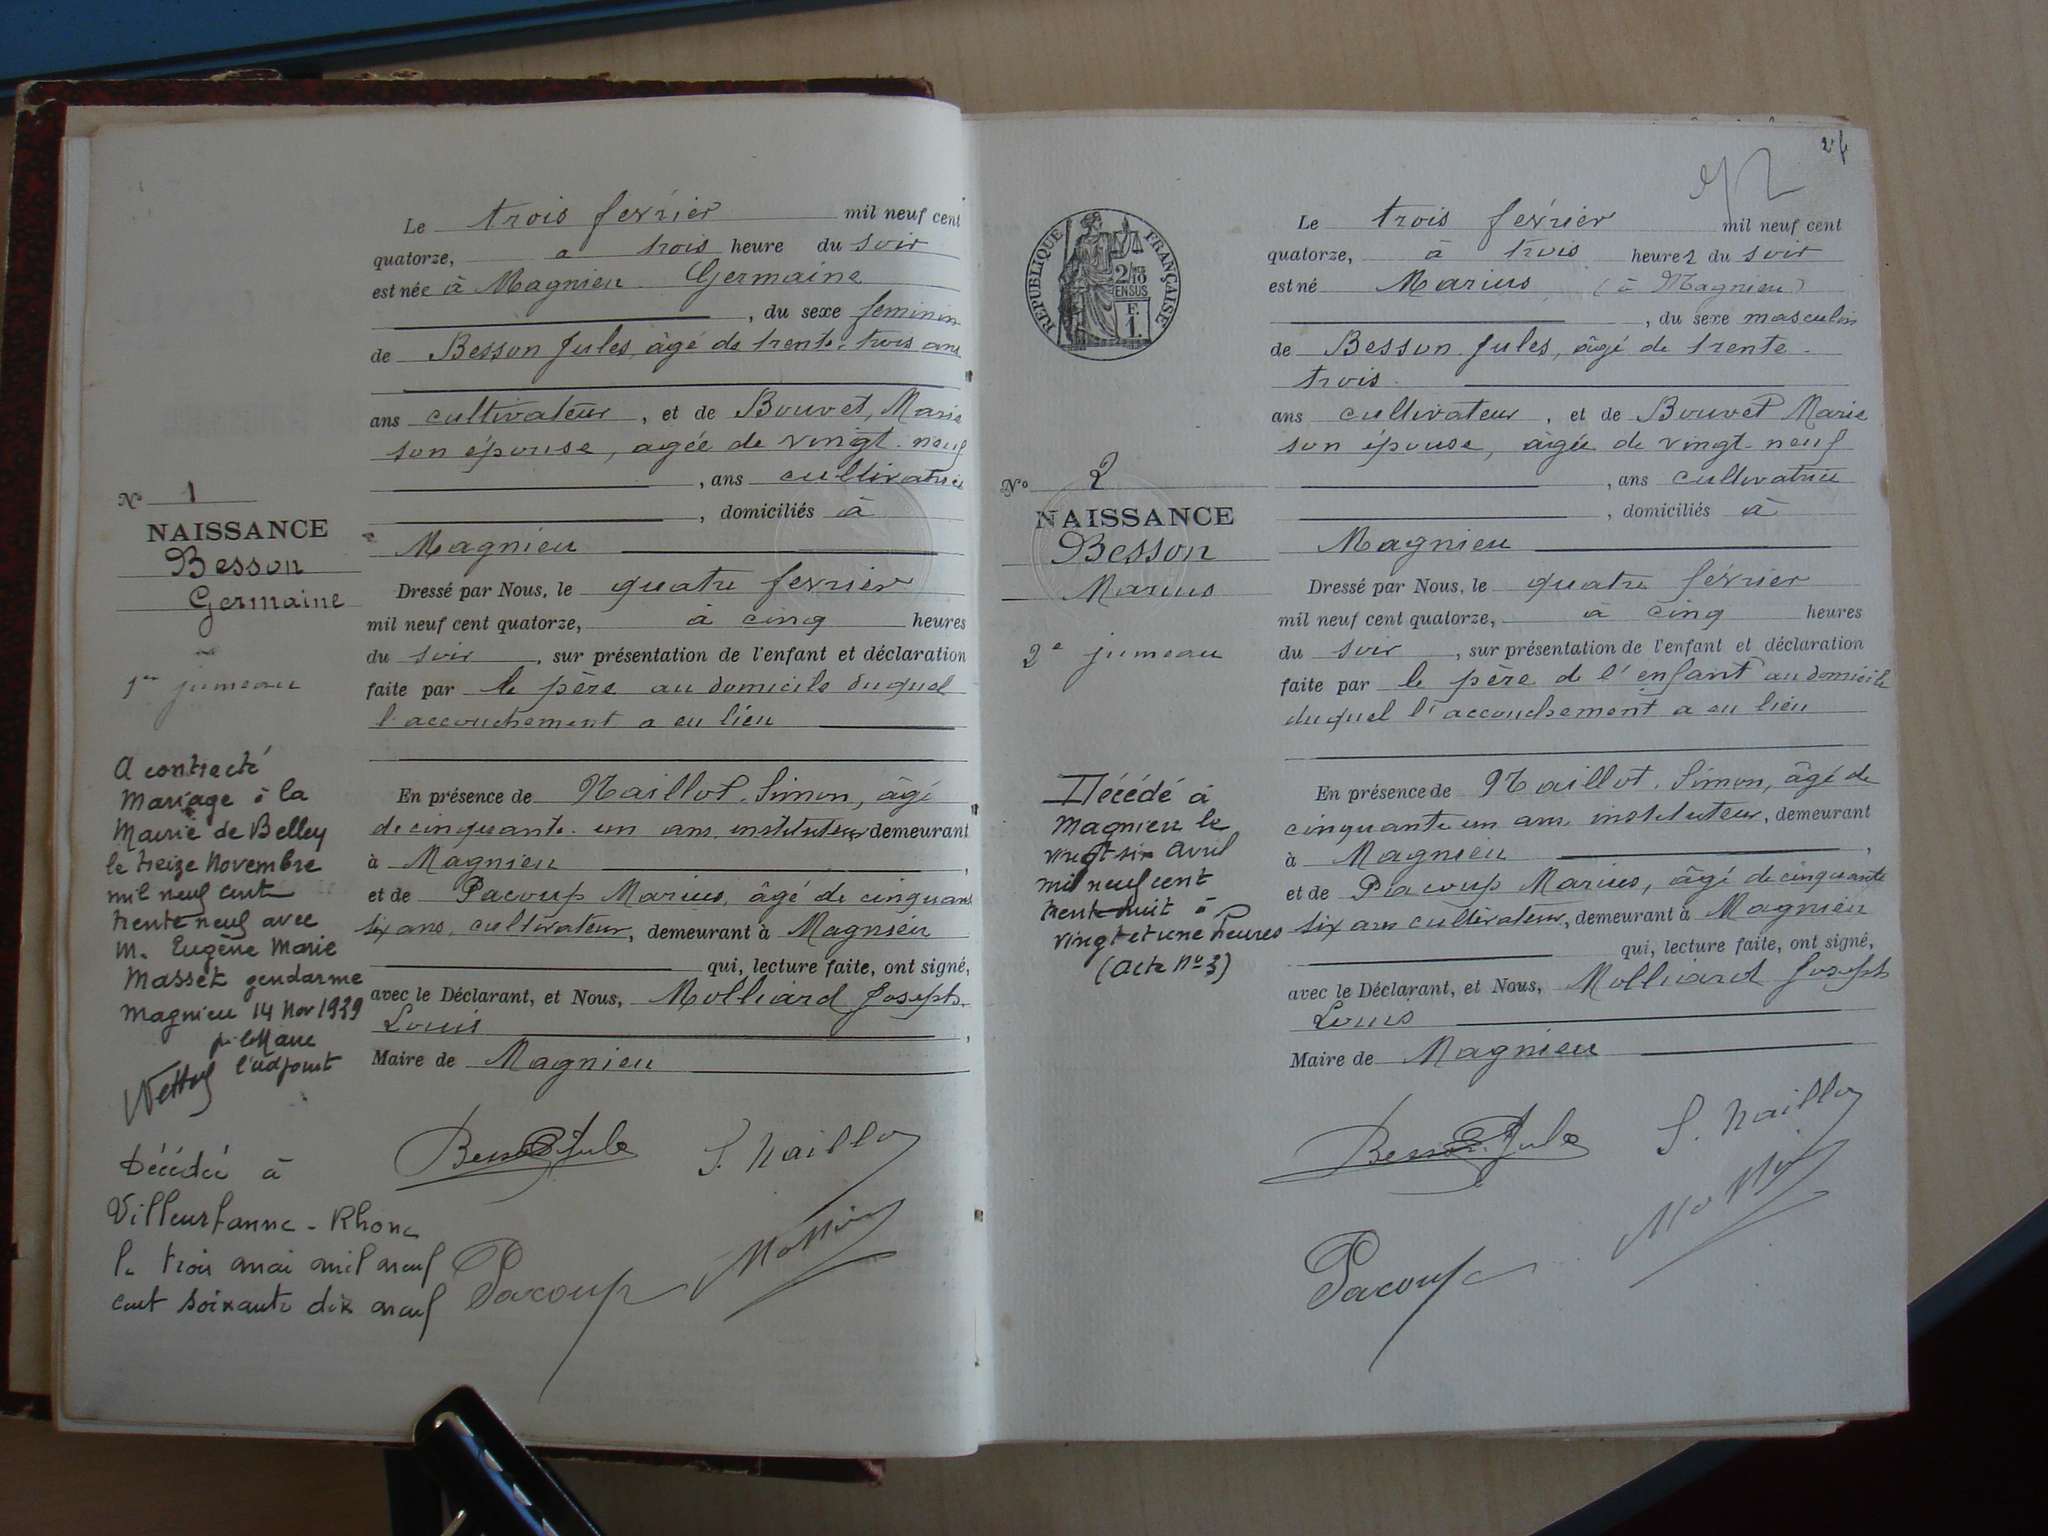 Le trois fevrier mil neuf cent
quatorze, a trois heure du soir
est née à Magnieu Germaine
, du sexe feminin
de Besson Jules, âgé de trente-trois ans
ans cultivateur, et de Bouvet, Marie
son épouse, agée de vingt-neuf
, ans cultivatrice
, domiciliés à
Magnieu
Dressé par Nous, le quatre fevrier
mil neuf cent quatorze, à cinq heures
du soir, sur présentation de l'enfant et déclaration
faite par le père au domicile duquel
l'accouchement a eu lieu
En présence de Naillot, Simon, âgé
de cinquante-un ans, instituteur demeurant
à Magnieu,
et de Pacoup Marius, âgé de cinquante
six ans, cultivateur, demeurant à Magnieu
qui, lecture faite, ont signé,
avec le Déclarant, et Nous, Molliard Joseph
Louis,
Maire de Magnieu
Besson Jules
S. Naillot
Pacoup
No 1
NAISSANCE
Besson
Germaine
1er jumeau
A contracté
Mariage à la
Mairie de Belley
le treize Novembre
mil neuf cent
trente neuf avec
M. Eugène Marie
Masset gendarme
Magnieu 14 Nov 1939
p. le Maire
l'adjoint
Décédée à
Villeurbanne - Rhône
le trois mai mil neuf
cent soixante dix neuf
2
REPUBLIQUE FRANÇAISE
2/10
EN SUS
F.
1.
Le trois février mil neuf cent
quatorze, à trois heures du soir
est né Marius (à Magnieu)
, du sexe masculin
de Besson Jules, âgé de trente-
trois
ans cultivateur, et de Bouvet Marie
son épouse, âgée de vingt-neuf
, ans cultivatrice
, domiciliés à
Magnieu
Dressé par Nous, le quatre février
mil neuf cent quatorze, à cinq heures
du soir, sur présentation de l'enfant et déclaration
faite par le père de l'enfant au domicile
duquel l'accouchement a eu lieu
En présence de Naillot, Simon, âgé de
cinquante un ans, instituteur, demeurant
à Magnieu,
et de Pacoup Marius, âgé de cinquante
six ans cultivateur, demeurant à Magnieu
qui, lecture faite, ont signé,
avec le Déclarant, et Nous, Molliard Joseph
Louis
Maire de Magnieu
Besson Jules
S. Naillot
Pacoup
No 2
NAISSANCE
Besson
Marius
2e jumeau
Décédé à
Magnieu le
vingt six avril
mil neuf cent
trente huit à
vingt et une heures
(acte No 3)